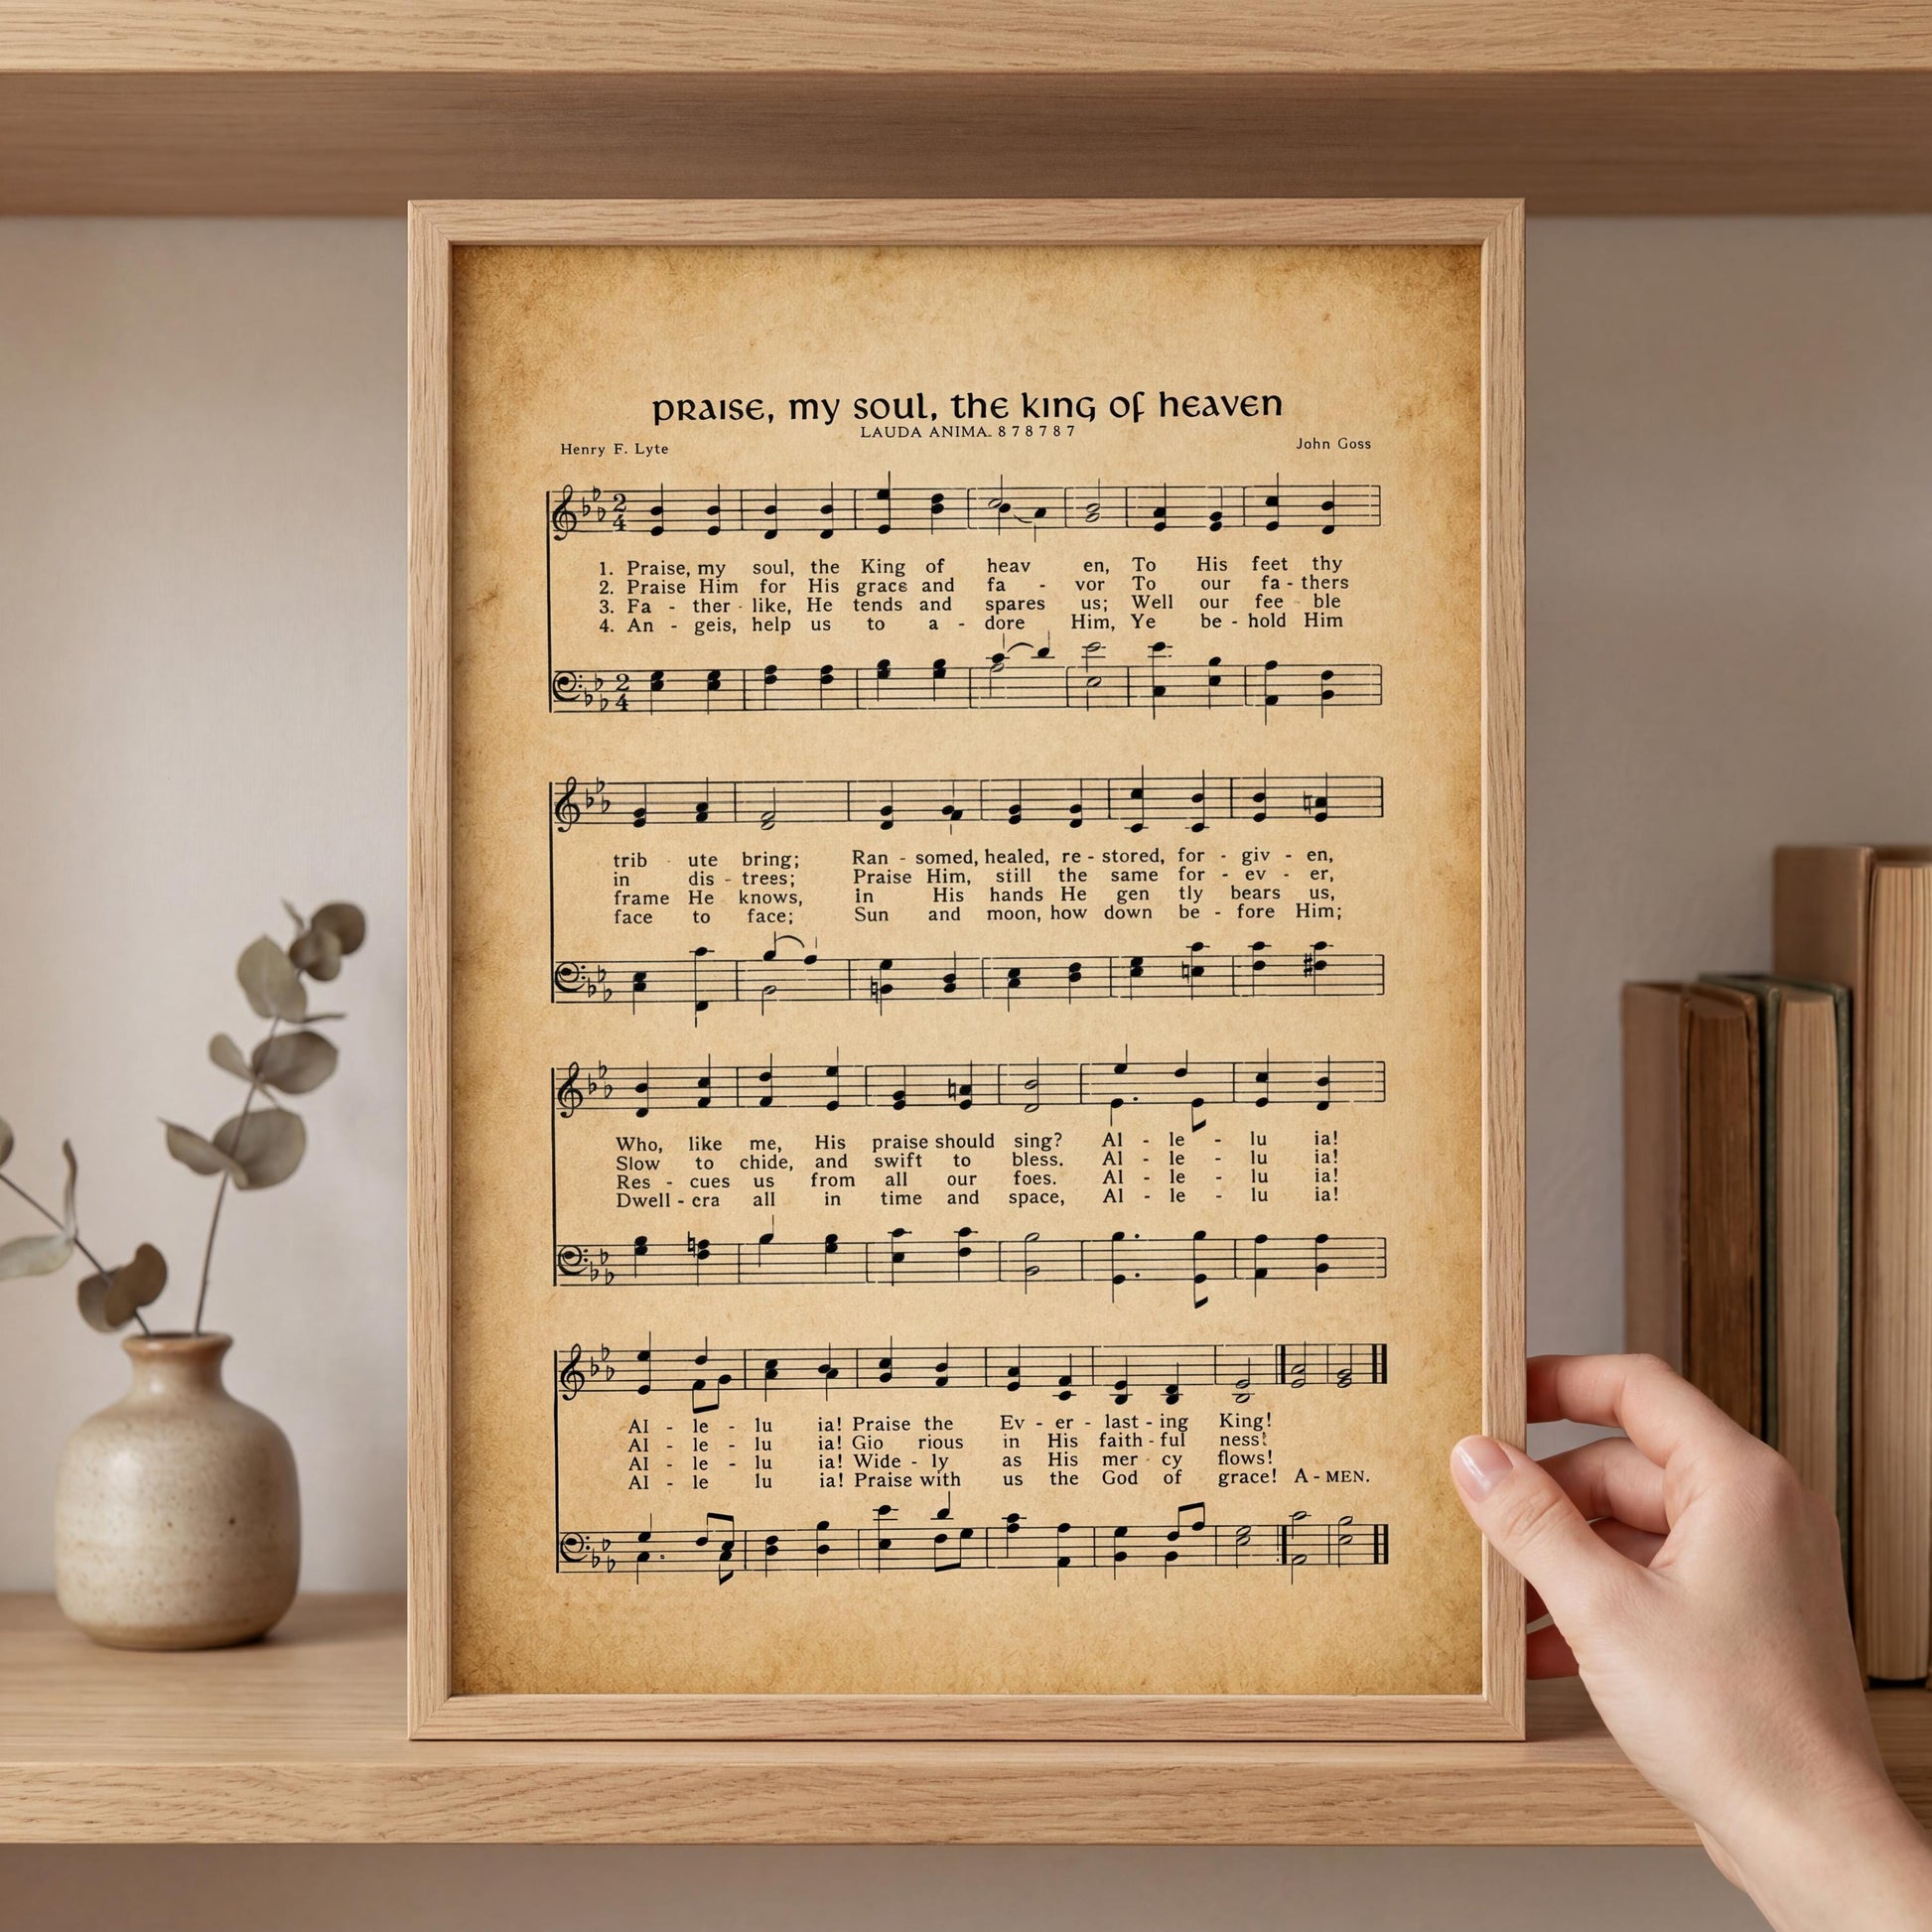 praise, my soul, the king of heaven
LAUDA ANIMA. 8 7 8 7 8 7
Henry F. Lyte
John Goss
1. Praise, my soul, the King of heav en, To His feet thy
2. Praise Him for His grace and fa - vor To our fa - thers
3. Fa - ther - like, He tends and spares us; Well our fee ble
4. An - geis, help us to a - dore Him, Ye be - hold Him
trib ute bring; Ran - somed, healed, re - stored, for - giv - en,
in dis - trees; Praise Him, still the same for - ev - er,
frame He knows, in His hands He gen tly bears us,
face to face; Sun and moon, how down be - fore Him;
Who, like me, His praise should sing? Al - le - lu ia!
Slow to chide, and swift to bless. Al - le - lu ia!
Res - cues us from all our foes. Al - le - lu ia!
Dwell - cra all in time and space, Al - le - lu ia!
AI - le - lu ia! Praise the Ev - er - last - ing King!
AI - le - lu ia! Gio rious in His faith - ful ness!
AI - le - lu ia! Wide - ly as His mer - cy flows!
AI - le - lu ia! Praise with us the God of grace! A - MEN.